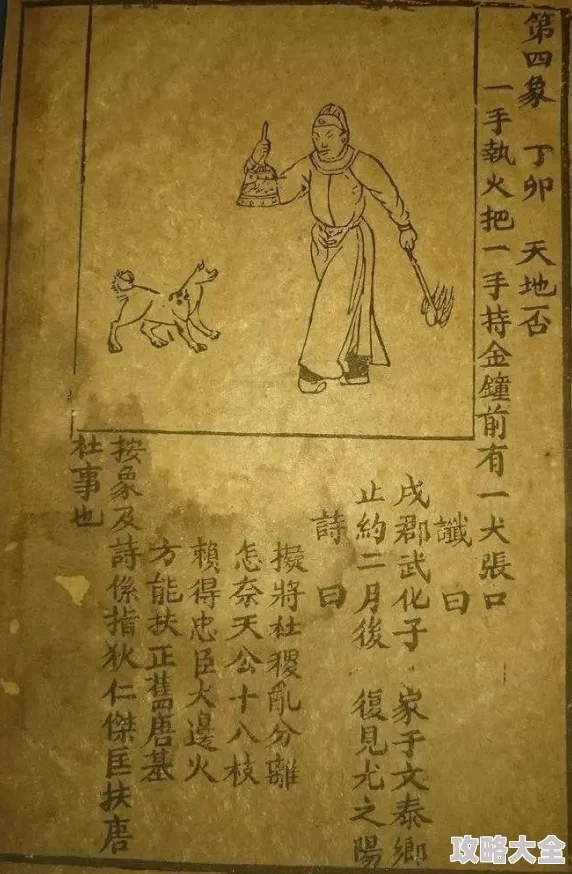 第四象 丁卯 天地否
一手執火把一手持金鐘前有一犬張口
讖曰
戌郡武化子 家于文泰鄉
止約二月後 復見尤之陽
詩曰
擬將杜稷亂分離
怎奈天公十八枝
賴得忠臣火邊火
方能扶正舊唐基
按象及詩係指狄仁傑匡扶唐
杜事也
攻略大全